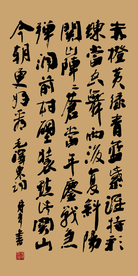 赤橙黃綠青藍紫誰持彩
練當空舞雨後復斜陽
關山陣々蒼當年鏖戰急
彈洞前村壁裝點此關山
今朝更好看 毛澤東詞 書